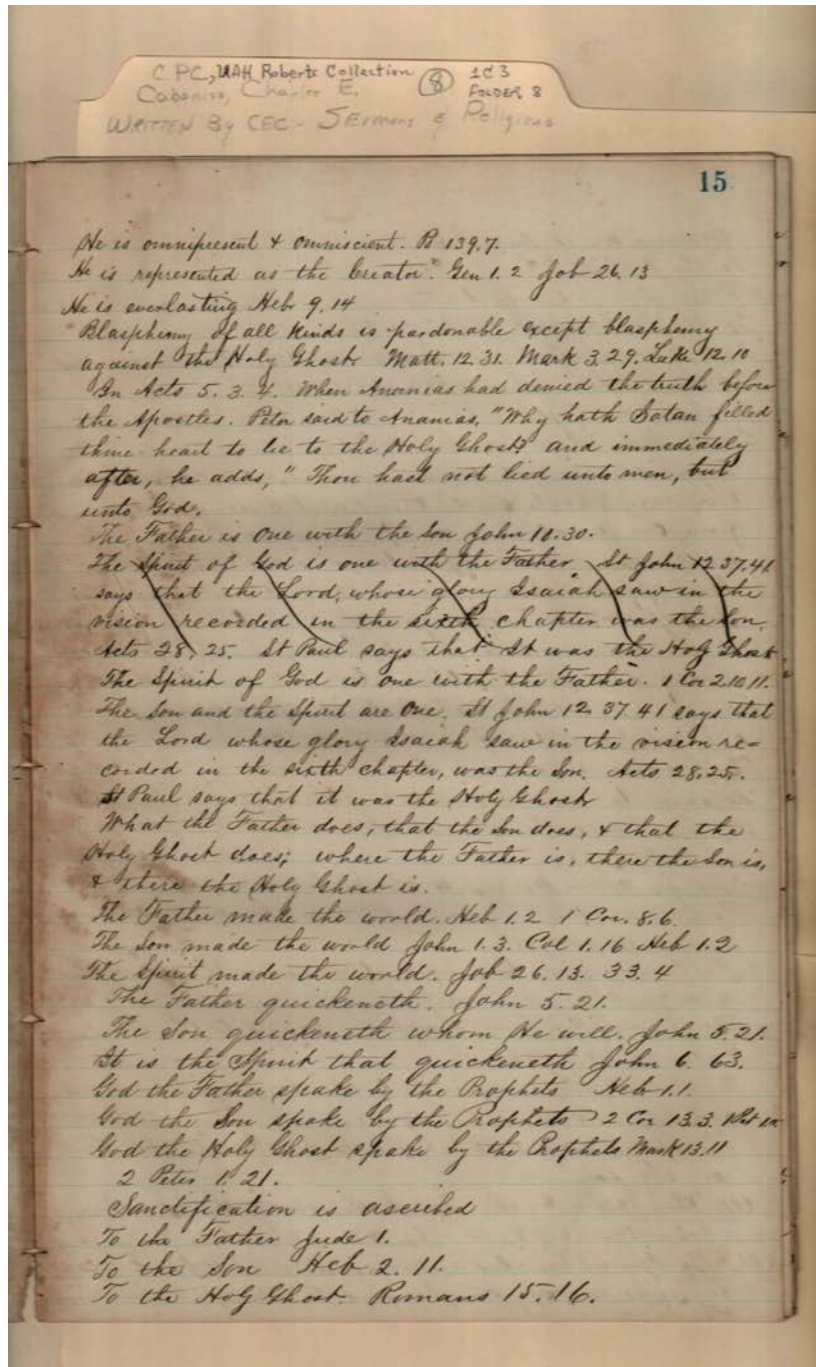 C PC, UAH Roberts Collection 8 1C3
Cabaniss, Charles E. FOLDER 8
WRITTEN By CEC - Sermons & Religious
15
He is omnipresent & omniscient. Ps 139.7.
He is represented as the Creator. Gen 1. 2 Job 26. 13
He is everlasting Hebr 9. 14
Blasphemy of all kinds is pardonable except blasphemy
against the Holy Ghost. Matt. 12. 31. Mark 3. 29. Luke 12. 10
In Acts 5. 3. 4. When Ananias had denied the truth before
the Apostles. Peter said to Ananias, "Why hath Satan filled
thine heart to lie to the Holy Ghost? and immediately
after, he adds, "Thou hast not lied unto men, but
unto God.
The Father is one with the Son John 10. 30.
The Spirit of God is one with the Father St John 12 37. 41
says that the Lord, whose glory Isaiah saw in the
vision recorded in the sixth chapter was the Son.
Acts 28, 25. St Paul says that It was the Holy Ghost
The Spirit of God is one with the Father. 1 Cor 2 10 11.
The Son and the Spirit are One. St John 12. 37. 41 says that
the Lord whose glory Isaiah saw in the vision re=
corded in the sixth chapter, was the Son. Acts 28. 25.
St Paul says that it was the Holy Ghost
What the Father does, that the Son does, & that the
Holy Ghost does; where the Father is, there the Son is,
& there the Holy Ghost is.
The Father made the world. Heb 1. 2 1 Cor. 8. 6.
The Son made the world John 1. 3. Col 1. 16 Heb 1. 2
The Spirit made the world. Job 26. 13. 33. 4
The Father quickeneth. John 5. 21.
The Son quickeneth whom He will. John 5. 21.
It is the Spirit that quickeneth John 6. 63.
God the Father spake by the Prophets Heb 1. 1.
God the Son spake by the Prophets 2 Cor 13. 3. 1 Pet
God the Holy Ghost spake by the Prophets Mark 13. 11
2 Peter 1. 21.
Sanctification is ascribed
To the Father Jude 1.
To the Son Heb 2. 11.
To the Holy Ghost. Romans 15. 16.